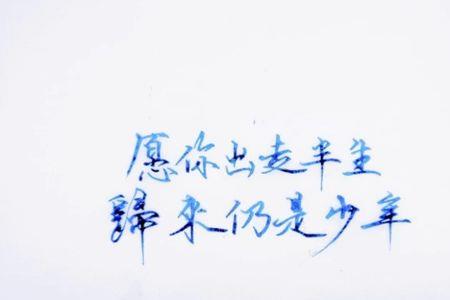 愿你出走半生
歸來仍是少年